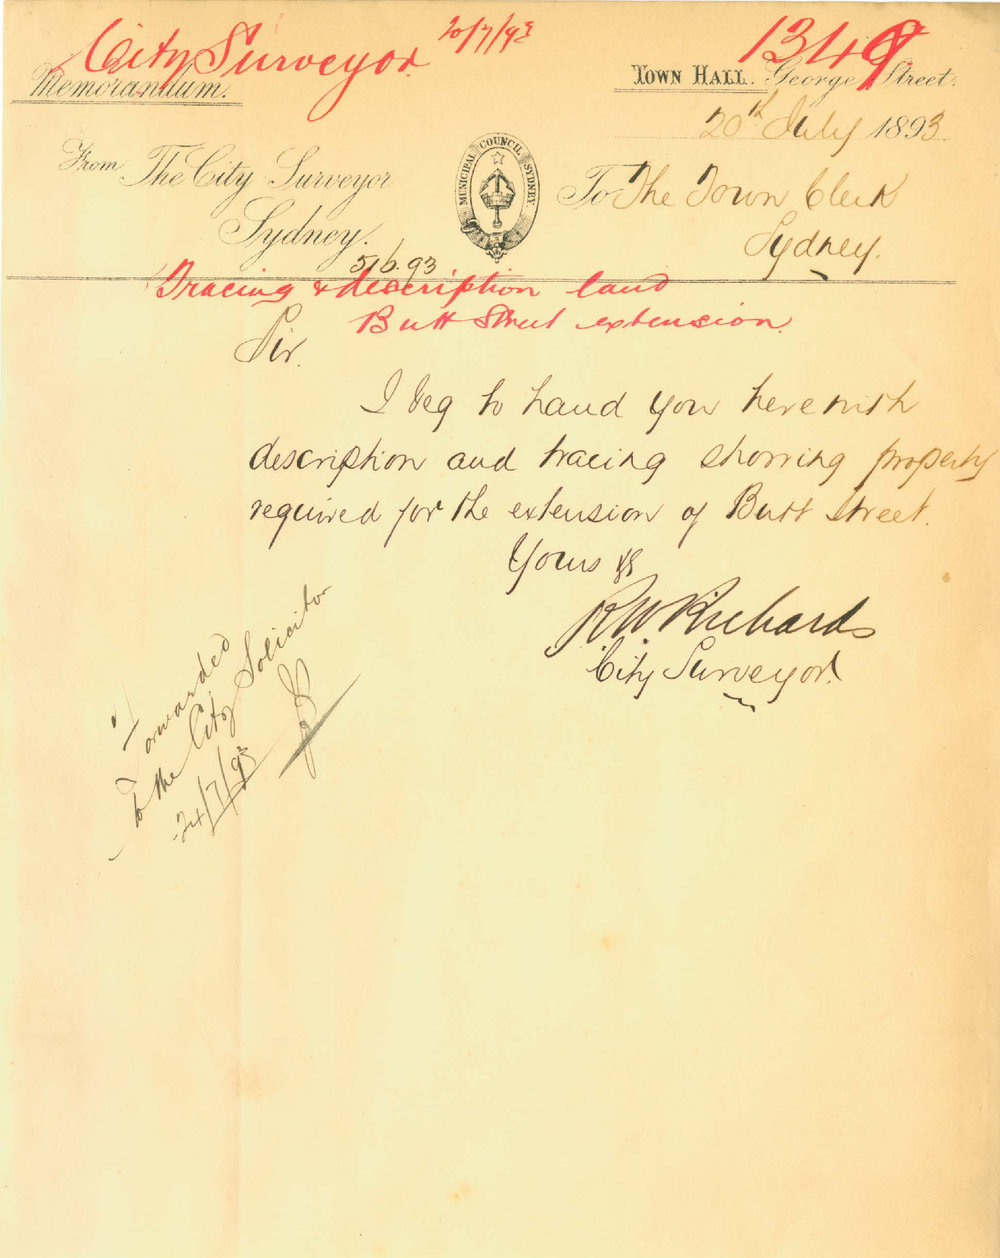 City Surveyor 20/7/93
1349
Memorandum.
Town Hall. George Street.
20th July 1893.
MUNICIPAL COUNCIL SYDNEY.
From The City Surveyor
Sydney.
To The Town Clerk
Sydney.
5/6.93
Tracing & description land
Butt Street extension.
Sir.
I beg to hand you herewith
description and tracing showing property
required for the extension of Butt Street.
Yours &c
R W Richards
City Surveyor.
Forwarded
to the City Solicitor
24/7/93